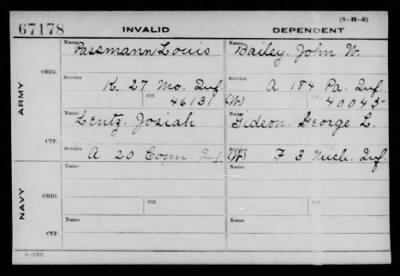 (3-III-5)
67178 INVALID DEPENDENT
ARMY
ORIG.
Name Passmann Louis
Service K. 27 Mo. Inf.
Ctf. 46131
Name Bailey. John W.
Service A 184 Pa. Inf
(W) Ctf. 40045
CTF.
Name Lentz. Josiah
Service A 20 Conn Inf
Name Gideon. George L.
Service (W) F 3 Mich. Inf.
NAVY
ORIG.
Name
Service
Ctf.
Name
Service
Ctf.
CTF.
Name
Service
Name
Service